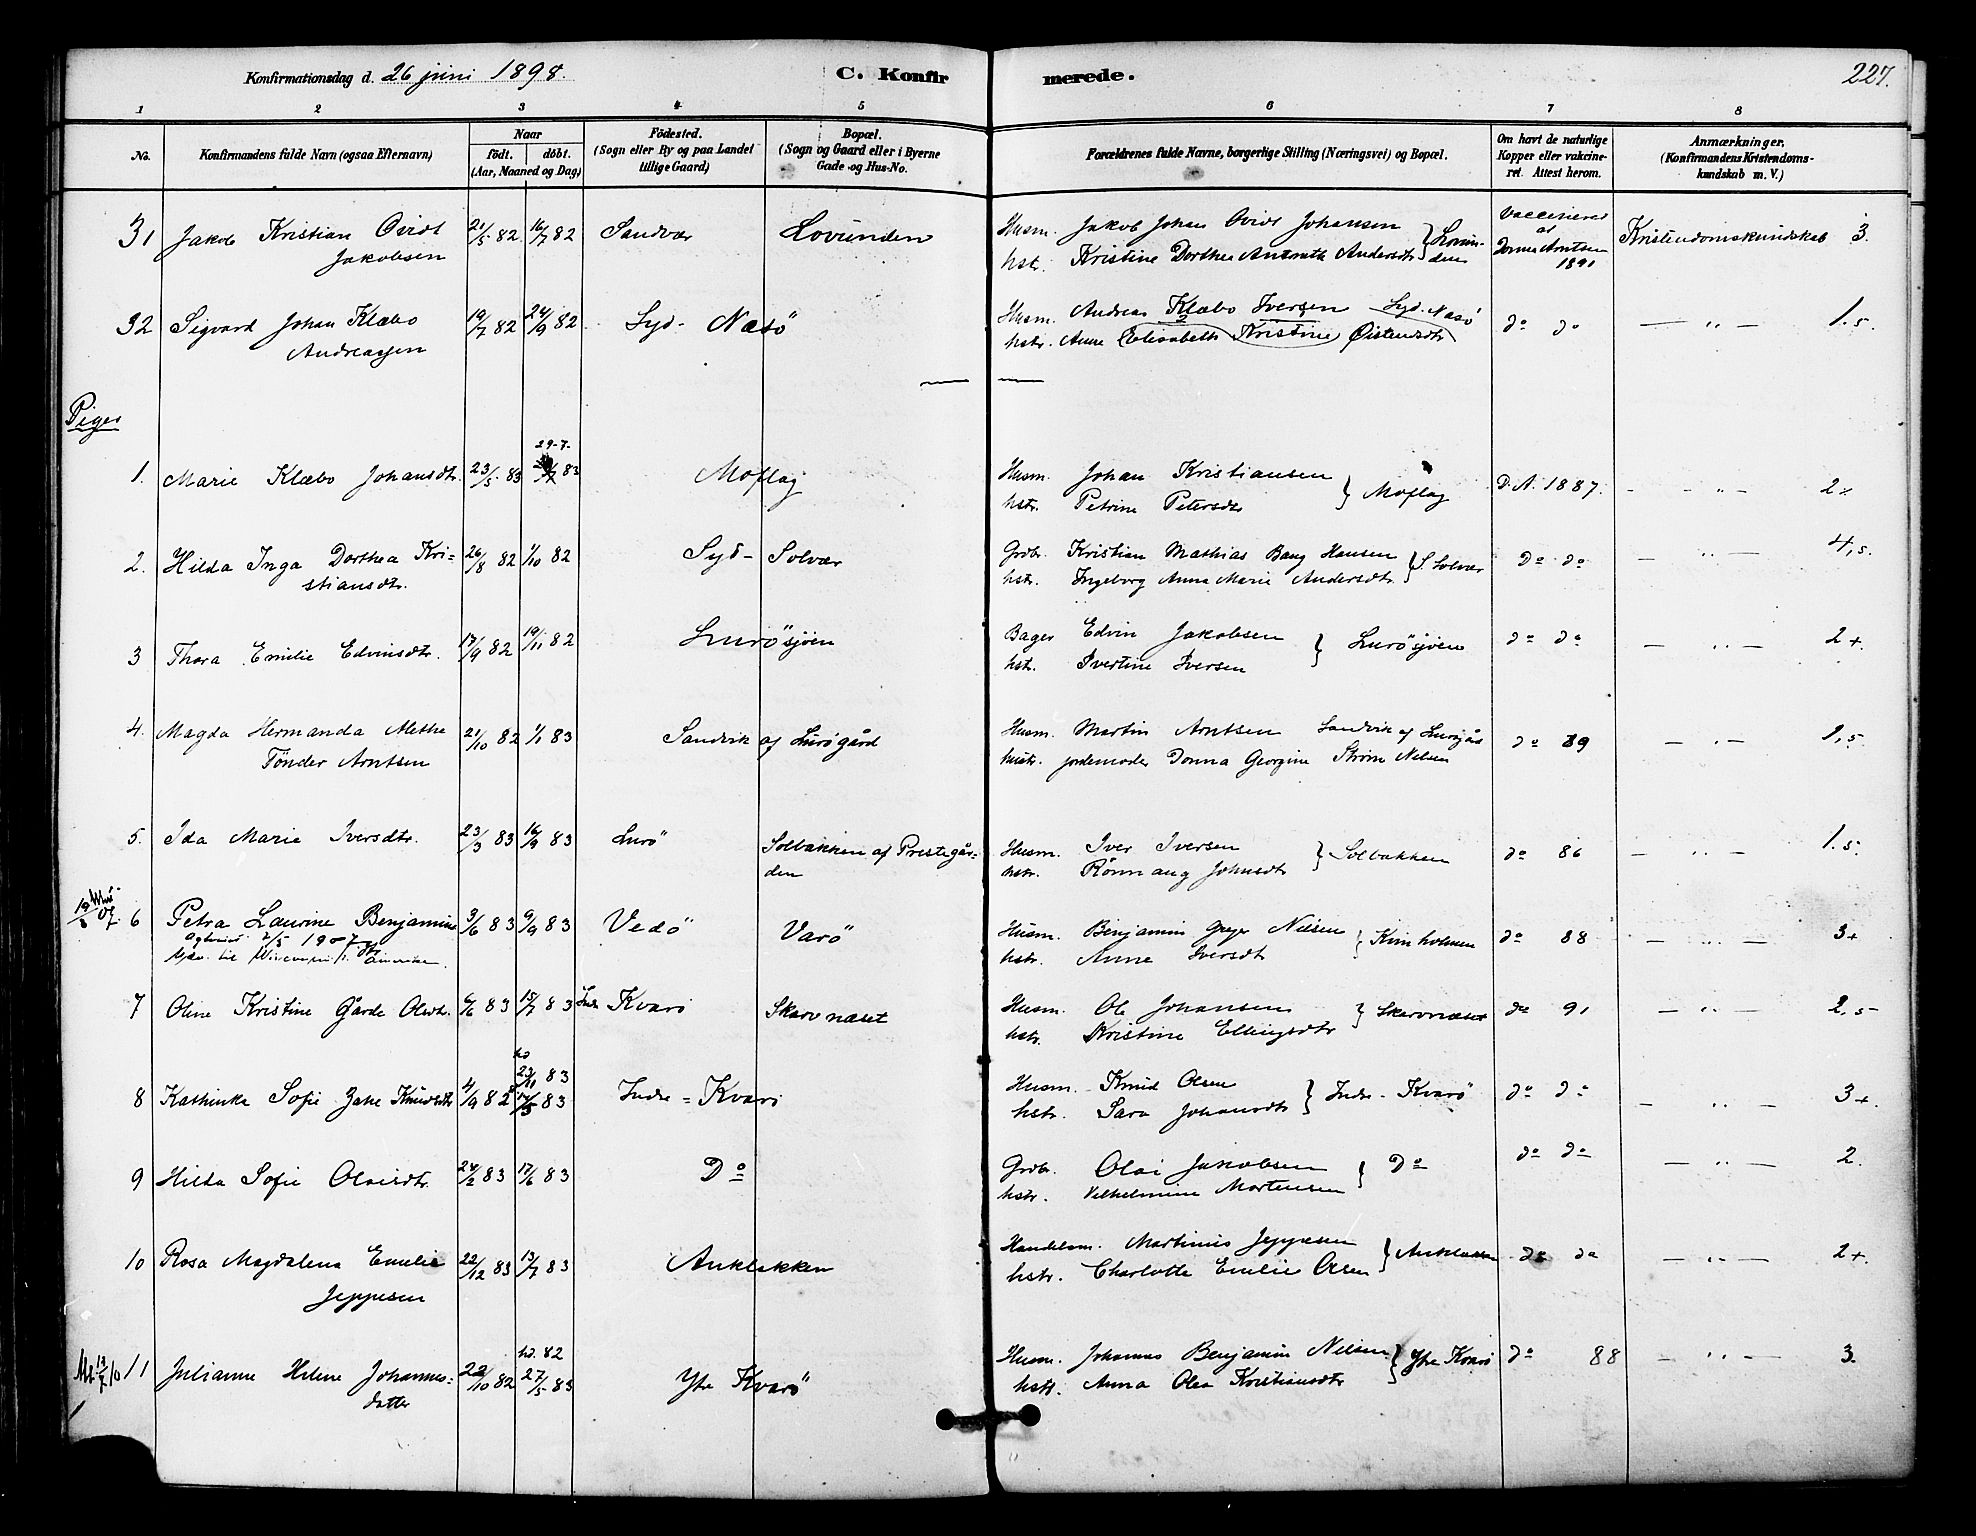 Konfirmationsdag d. 26 juni 1898.
C. Konfirmerede.
227.
1 2 3 4 5 6 7 8
No.
Konfirmandens fulde Navn (ogsaa Efternavn)
Naar
födt. döbt.
(Aar, Maaned og Dag)
Födested.
(Sogn eller By og paa Landet
tillige Gaard)
Bopæl.
(Sogn og Gaard eller i Byerne
Gade og Hus-No.
Forældrenes fulde Navne, borgerlige Stilling (Næringsvei) og Bopæl.
Om havt de naturlige
Kopper eller vakcine-
ret. Attest herom.
Anmærkninger.
(Konfirmandens Kristendoms-
kundskab m. V.)
31 Jakob Kristian Qvidt 21/5 82 16/7 82 Sandvær Lovunden Husm. Jakob Johan Qvidt Johansen } Lovun- Vaccineret Kristendomskundskab 3.
Jakobsen hstr. Kristine Dorthea Andersdtr den af Donna Arntsen 1891
32 Sigvard Johan Klæbo 19/7 82 24/9 82 Syd-Næsö Husm. Andreas Klæbo Iversen Syd-Næsö do do — „ — 1.5
Andreassen hstr. Anne Elisabeth Kristine Öistensdtr
Piger
29-7-
1. Marie Klæbo Johansdtr. 23/5 83 83 Moflag Husm. Johan Kristiansen } Moflag D.A. 1887. — „ — 2
hstr. Petrine Petersdtr
2. Hilda Inga Dorthea Kri= 26/8 82 1/10 82 Syd-Solvær Grdbr. Kristian Mathias Bang Hansen } S. Solvær Do do — „ — 4,5.
stiansdtr. hstr. Ingeborg Anna Marie Andersdtr.
3 Thora Emilie Edvinsdtr. 17/9 82 19/11 82 Lurösjöen Bager Edvin Jakobsen } Lurösjöen do do — „ — 2+.
hstr. Ivertine Iversen
4. Magda Hermanda Methe 21/10 82 1/1 83 Sandvik af Lurögård Husm. Martin Arntsen Sandvik af Lurögård do 89 — „ — 1,5.
Tönder Arntsen hustr. jordemoder Donna Georgine Ström Nelsen
5. Ida Marie Iversdtr. 23/3 83 16/9 83 Lurö Solbakken af Prestegår- Husm. Iver Iversen } Solbakken do 86 — „ — 1.5.
den hstr. Rönnaug Johnsdtr
6 Petra Laurine Benjamins 3/6 83 9/9 83 Vedö Varö Husm. Benjamin Greger Nilsen } Kvinholmen do 88 — „ — 3+
2/5 1907 dtr hstr. Anne Iversdtr
til Wisconsin Amerika.
7 Oline Kristine Gårde Olsdtr. 6/6 83 15/7 83 Indre Kvarö Skarvnæset Husm. Ole Johansen } Skarvnæset do 91 — „ — 2,5
hstr. Kristine Ellingsdtr
hd
23/11 83
8 Kathinka Sofie Knudsdtr 4/9 82 14/5 83 Indre = Kvarö Husm. Knud Olsen } Indre - Kvarö do do — „ — 3+.
hstr. Sara Johansdtr
9 Hilda Sofie Olaisdtr. 24/2 83 17/6 83 Do Grdbr. Olai Jakobsen } Do do do — „ — 2.
hstr. Vilhelmine Mortensen
10 Rosa Magdalena Emelie 22/12 83 13/7 83 Anklakken Handelsm. Martinus Jeppesen } Anklakken do do — „ — 2+.
Jeppesen hstr. Charlotte Emilie Olsen
hd. 82
11 Julianne Helene Johannes= 22/10 82 27/5 83 Ytre Kvarö Husm. Johannes Benjamin Nilsen } Ytre Kvarö do 88 — „ — 3.
datter hstr. Anna Olea Kristiansdtr